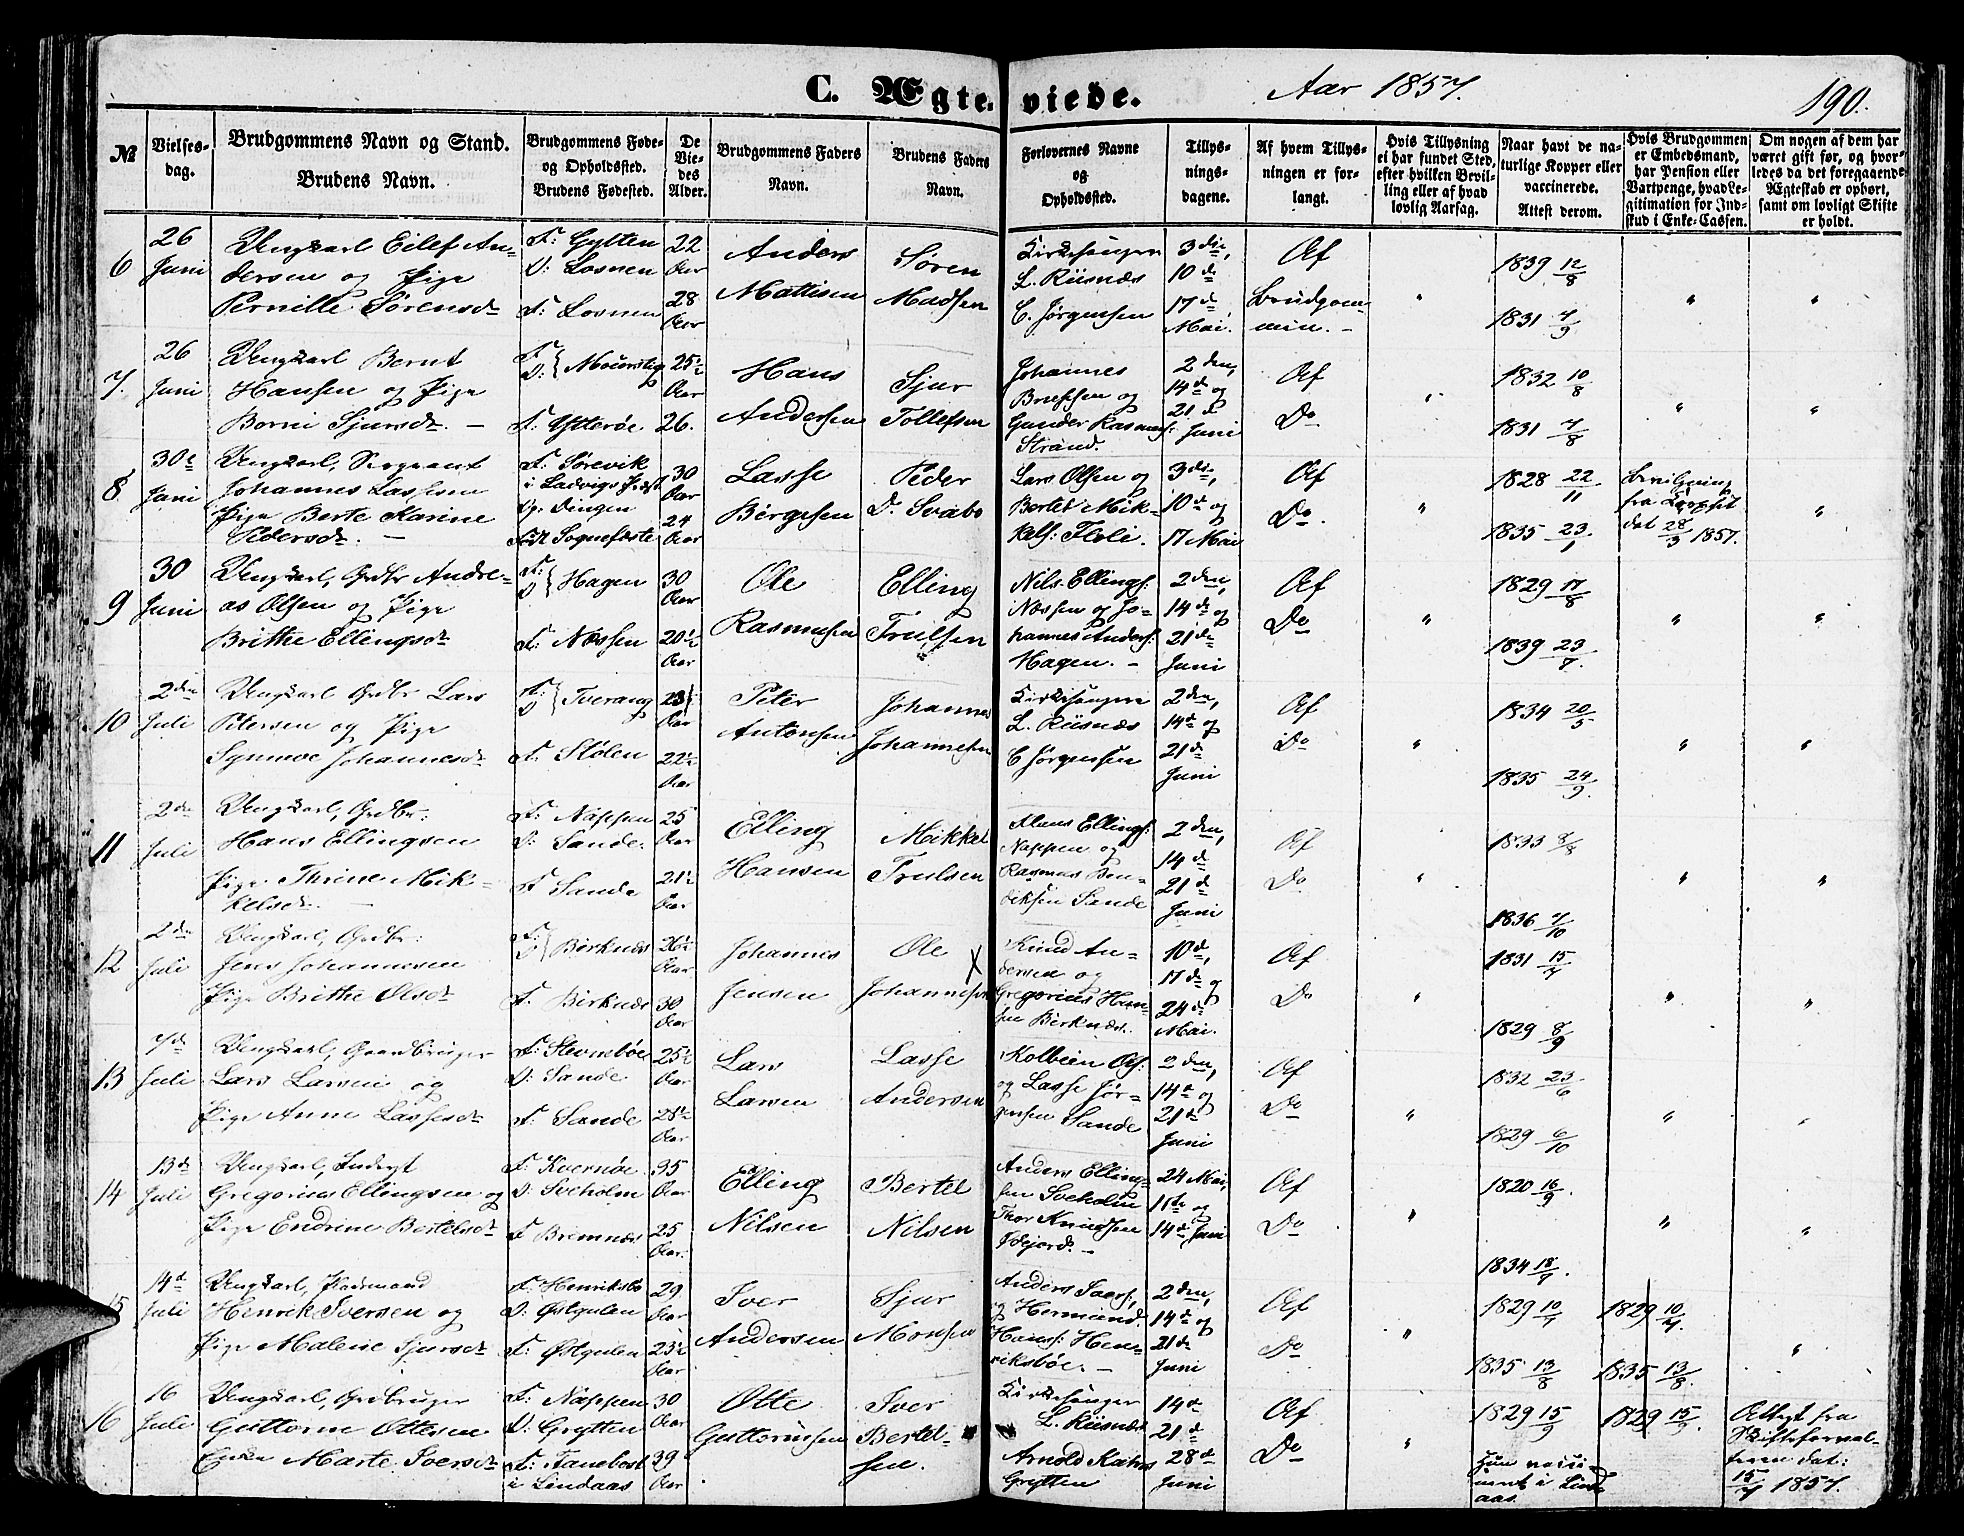 C. Ægteviede. Aar 1857. 190.
№
Vielsesdag.
Brudgommens Navn og Stand.
Brudens Navn.
Brudgommens Føde- og Opholdssted.
Brudens Fødested.
De Viedes Alder.
Brudgommens Faders Navn.
Brudens Faders Navn.
Forlovernes Navne og Opholdssted.
Tillysningsdagene.
Af hvem Tillysningen er forlangt.
Hvis Tillysning ei har fundet Sted, efter hvilken Bevilling eller af hvad lovlig Aarsag.
Naar havt de naturlige Kopper eller vaccinerede. Attest derom.
Hvis Brudgommen er Embedsmand, har Pension eller Vartpenge, hvad Legitimation for Indskud i Enke-Cassen.
Om nogen af dem har været gift før, og hvorledes da det foregaaende Ægteskab er ophørt, samt om lovligt Skifte er holdt.
6 26 Juni Ungkarl Eilef Andersen og Pige Pernille Sørensdr
F: Gytten O: Losnen F: Losnen
22 Aar 28 Aar
Anders Mattisen Søren Madsen
Kirkesanger L. Riisnæs C. Jørgensen
3die, 10de 17de Mai. Af Brudgommen. " 1839 12/8 1831 7/9 " "
7. 26 Juni Ungkarl Bernt Hansen og Pige Borni Sjursdr. —
F: O: F: Ytterøe 25½ Aar 26.
Hans Andersen Sjur Tollefsen
Johannes og Gunder Rasmuss: Strand.
2den, 14de og 21de Juni Af Do " 1832 10/8 1831 7/8 " "
8 30te Juni Ungkarl, Sergeant Johannes Lassesen Pige Berte Karine Pedersdr. —
F: Sørevik i Ladvigs Præst Dingen Sognefæste
30 Aar 24 Aar
Lasse Børgesen Peder D. Svabo
Lars Olsen og Bertel Mikkels: Floli.
3die, 10de og 17 Mai Af Do. " 1828 22/11 1835 23/1
Bevilgning fra dat 28/3 1857. "
9 30 Juni Ungkarl, Grdbr Andreas Olsen og Pige Brithe Ellingsdr
F: O: Hagen F: Næssen 30 Aar 20½ Aar
Ole Rasmusen Elling Trulsen
Nils Ellings: Næssen og Johannes Anders: Hagen. —
2den, 14de og 21de Juni Af Do " 1829 17/8 1839 23/7. " "
10 2den Juli Ungkarl Grdbr Lars Petersen og Pige Synnøve Johannesdr
F: O: Tverang F: Stølen 23½ Aar 22½ Aar
Peter Antonsen Johannes Johannesen
Kirkesanger L. Riisnæs C Jørgensen
2den, 14de og 21de Juni Af Do " 1834 20/5 1835 24/9. " "
11 2den Juli Ungkarl, Grdbr: Hans Ellingsen Pige Thrine Mikkelsdr. —
F: Næssen O: Sande. F Sande 25 Aar 21½ Aar
Elling Hansen Mikkel Trulsen
Ellings: Næssen og Rasmus Bendiksen Sande
2den, 14de 21de Juni Af Do " 1833 8/8 1836 7/10 " "
12 2den Juli Ungkarl, Grdbr: Jens Johannesen Pige Brithe Olsdr
F: O: Birknæs F. Birknæs 26½ Aar 30 Aar
Johannes Jensen Ole Johannesen X
Knud Andersen og Gregorius Hansen Birknæs.
10de, 17de og 24de Mai. Af Do " 1831 15/7 1829 8/9 " "
13 7de Juli Ungkarl, Gaardbruger Lars Larsen og Pige Anne Lassesdr
F: Stevnebøe O: Sande F: Sande 25½ Aar 28½ Aar
Lars Larsen Lasse Andersen
Kolbein Ol: og Lasse Jørgensen Sande
2den, 14de og 21de Juni Af Do " 1832 23/6 1829 6/10 " "
14 13de Juli Ungkarl, Inderst Gregorius Ellingsen og Pige Endrine Bertelsdr
F. Kvernøe O: Sveholm F Bremnæs 35 Aar 25 Aar.
Elling Nilsen Bertel Nilsen
Anders Ellingsen Sveholm Thor Knudsen
24 Mai, 11te og 14de Juni Af Do " 1820 16/9. 1834 18/7. " "
15 14de Juli Ungkarl, Henrik Iversen og Pige Malene Sjursdr
F. Henriksbø O: Østgulen F. Østgulen 29 Aar 23½ Aar
Iver Andersen Sjur Monsen
Anders Ivers:, og Hermund Hans: Henriksbøe. —
2den, 14de og 21de Juni Af Do " 1829 10/7 1835 13/8 1829 10/7. 1835 13/8. "
16 16 Juli Ungkarl, Grdbruger Guttorm Ottesen Enke Marte Iversdr
F: Næssen O: Grytten F: Tanebost i Lindaas 30 Aar 39 Aar
Otte Guttormsen Iver Bertelsen.
Kirkesanger L. Riisnæs Arnold Grytten
14de 21de 28de Juni Af Do " 1829 15/9 Hun vaccineret i Lindaas. 1829 15/9. Attest fra Skifteforvalteren dat: 15/7 1857.